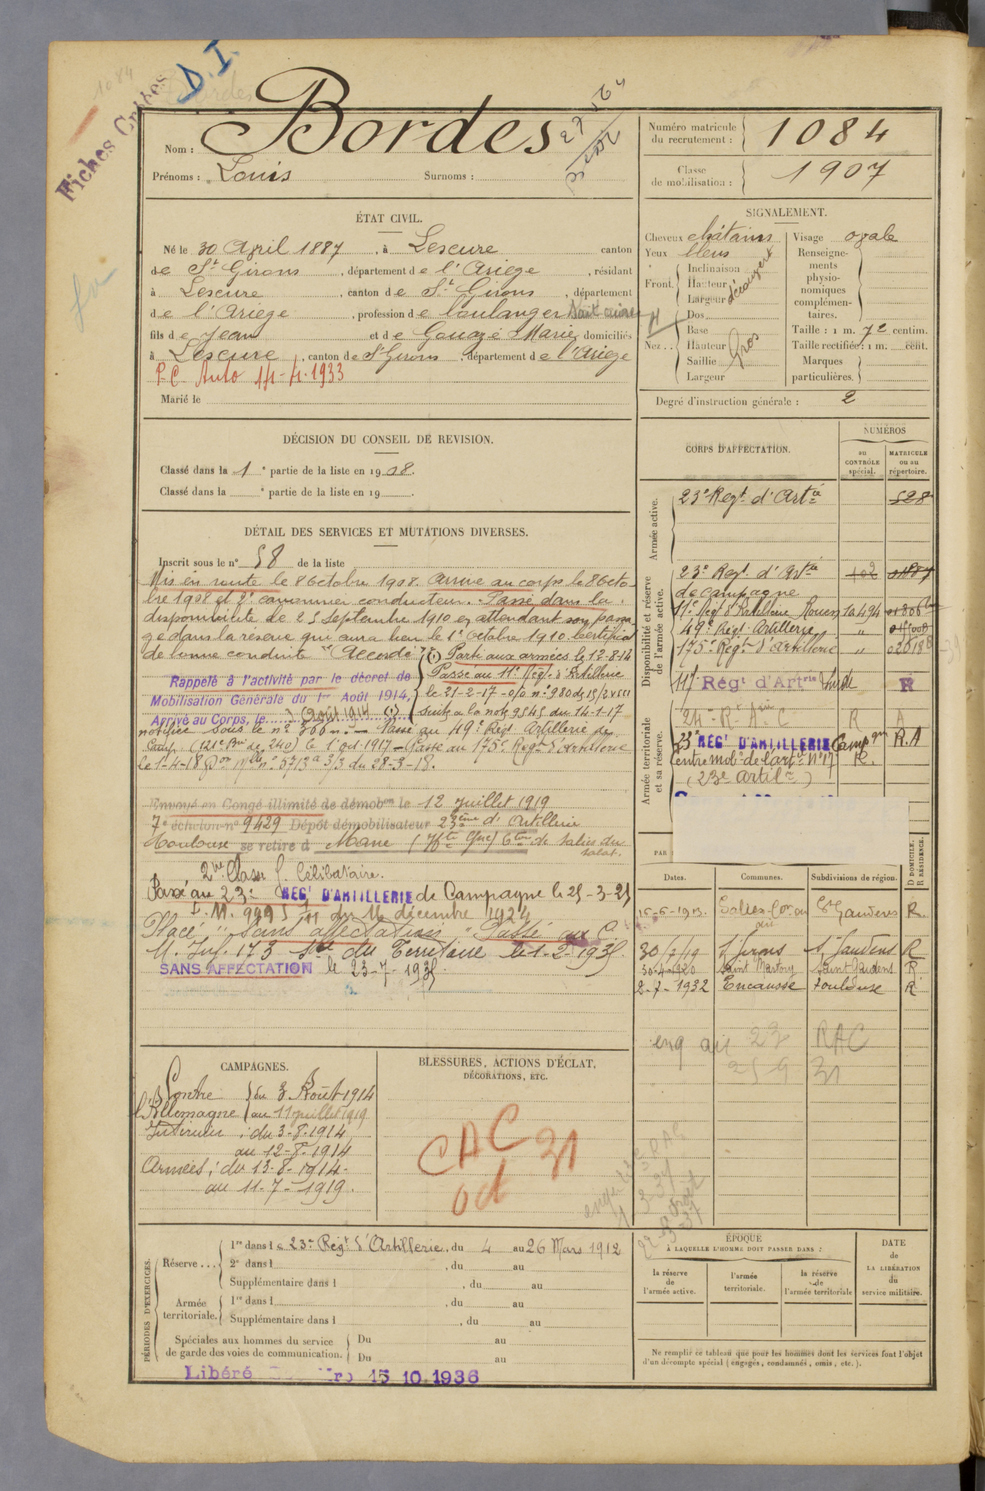 1084
D.I.
Nom : Bordes
Prénoms : Louis Surnoms :
Numéro matricule du recrutement : 1084
Classe de mobilisation : 1907
ÉTAT CIVIL.
Né le 30 Avril 1887, à Lescure canton
de St Girons, département de l'Ariège, résidant
à Lescure, canton de St Girons, département
de l'Ariège, profession de boulanger
fils de Jean et de Gouazé Marie, domiciliés
à Lescure, canton de St Girons, département de l'Ariège
P.C. Auto 14-4-1933
Marié le
SIGNALEMENT.
Cheveux châtains
Yeux bleus
Front. Inclinaison
Hauteur
Largeur
découvert
Nez Dos
Base
Hauteur
Saillie
Largeur
Gros
Visage ovale
Renseignements physionomiques complémentaires.
Taille : 1 m. 72 centim.
Taille rectifiée : 1 m. cent.
Marques particulières.
Degré d'instruction générale : 2
DÉCISION DU CONSEIL DE REVISION.
Classé dans la 1e partie de la liste en 1908.
Classé dans la e partie de la liste en 19 .
DÉTAIL DES SERVICES ET MUTATIONS DIVERSES.
Inscrit sous le n° 58 de la liste
Mis en route le 8 Octobre 1908. Arrivé au corps le 8 Octo-
bre 1908 et 2e canonnier conducteur. Passé dans la
disponibilité le 25 Septembre 1910 en attendant son passa-
ge dans la réserve qui aura lieu le 1er Octobre 1910. Certificat
de bonne conduite "Accordé"
Rappelé à l'activité par le décret de
Mobilisation Générale du 1er Août 1914,
Arrivé au Corps, le 3 Août 1914 (1)
(1) Parti aux armées le 12-8-14
Passé au 11e Régt d'Artillerie
le 21-2-17
Suite à la note 9545 du 14-1-17
notifiée sous le n° Passé au 49e Régt Artillerie de
Camp. (121e Bie de 240) le 1 oct 1917 - Passé au 175e Régt d'Artillerie
le 1-4-18 n° 5713 3/3 du 28-3-18.
Envoyé en Congé illimité de démobon le 12 Juillet 1919
7e échelon n° 9429 Dépôt démobilisateur 23ème d'Artillerie
Toulouse se retire à Mane (Hte Gne) Cton de Salies du
Salat.
2me Classe Célibataire.
Passé au 23e RÉGt D'ARTILLERIE de Campagne le 25-3-25
I.M. 9995 du 16 décembre 1924
Placé "Sans affectation" Passé au C.
M. Inf. 173 du Territoire le 1-2-1935
SANS AFFECTATION le 23-7-1935
CORPS D'AFFECTATION.
NUMÉROS
au CONTRÔLE spécial.
MATRICULE ou au répertoire.
Armée active.
23e Régt d'Artie 528
Disponibilité et réserve de l'armée active.
23e Régt d'Artie
de campagne
11e Régt d'Artillerie Rouen 10494
49e Régt Artillerie "
175e Régt d'Artillerie "
117 Régt d'Artrie Lourde R
Armée territoriale et sa réserve.
24 R A C R A
23e RÉGt D'ARTILLERIE Campgne R.A
Centre mobre de l'artie N°17 R.
(23e Artille)
Dates. Communes. Subdivisions de région. D DOMICILE. R RÉSIDENCE.
15-6-1913. St Gaudens R.
30/7/19 St Girons St Gaudens R
30-4-20 Saint Martory Saint-Gaudens R.
2-7-1932 Encausse Toulouse R
23 RAC
25 9 31
CAMPAGNES.
Contre l'Allemagne du 3 Août 1914
au 11 juillet 1919
Intérieur : du 3-8-1914
au 12-8-1914
Armées : du 13-8-1914
au 11-7-1919.
BLESSURES, ACTIONS D'ÉCLAT,
DÉCORATIONS, ETC.
CAC 31
oct
PÉRIODES D'EXERCICES.
Réserve... 1re dans le 23e Régt d'Artillerie, du 4 au 26 Mars 1912
2e dans l , du au
Supplémentaire dans l , du au
Armée territoriale. 1re dans l , du au
Supplémentaire dans l , du au
Spéciales aux hommes du service
de garde des voies de communication. Du au
Du au
Libéré 15.10.1936
ÉPOQUE
À LAQUELLE L'HOMME DOIT PASSER DANS :
la réserve de l'armée active.
l'armée territoriale.
la réserve de l'armée territoriale
DATE de LA LIBÉRATION du service militaire.
Ne remplir ce tableau que pour les hommes dont les services font l'objet
d'un décompte spécial (engagés, condamnés, omis, etc.).